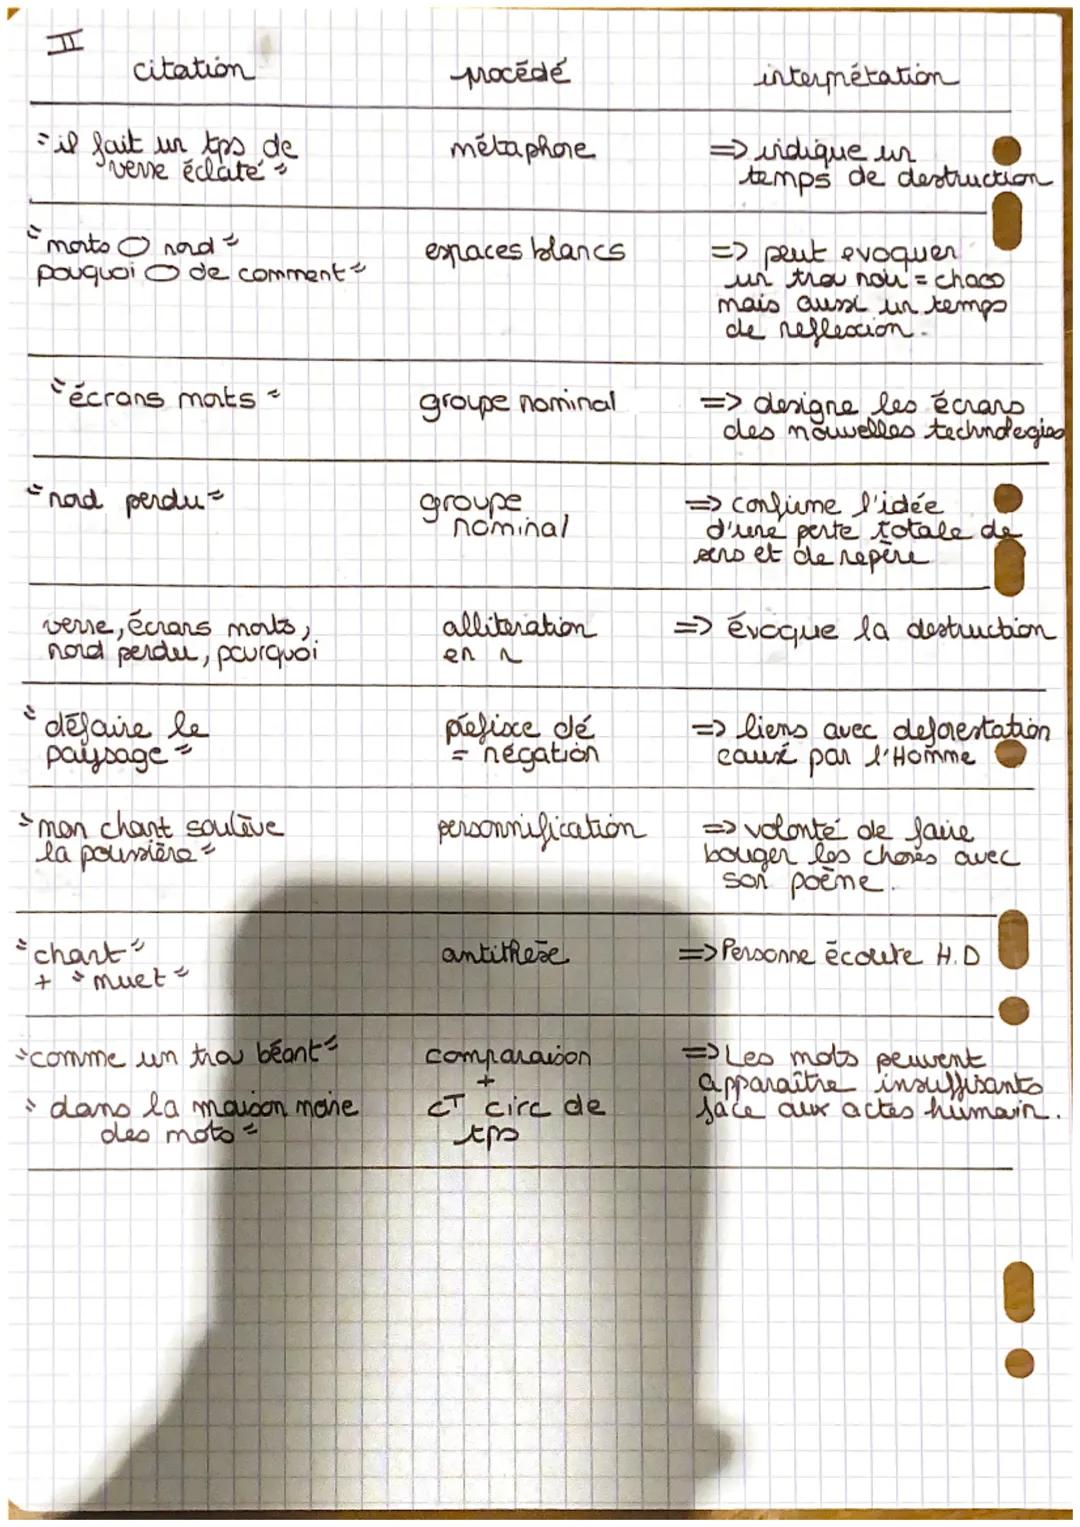 II
citation procédé interprétation
"il fait un tps de métaphore => indique un
verre éclaté" temps de destruction
"morts O nord" espaces blancs => peut evoquer
pouquoi O de comment" un trou noir = chaos
mais aussi un temps
de reflexion.
"écrans morts" groupe nominal => designe les écrans
des nouvelles technologies
"nord perdu" groupe => confirme l'idée
nominal d'une perte totale de
sens et de repère
verre, écrans morts, allitération => évoque la destruction
nord perdu, pourquoi en r
"défaire le préfixe dé => liens avec deforestation
paysage" = négation causé par l'Homme
"mon chant soulève personnification => volonté de faire
la poussière" bouger les choses avec
son poème.
"chant" antithèse => Personne écoute H.D
+ "muet"
"comme un trou béant" comparaison => Les mots peuvent
+ apparaître insuffisants
"dans la maison noire CT circ de face aux actes humain.
des mots" tps